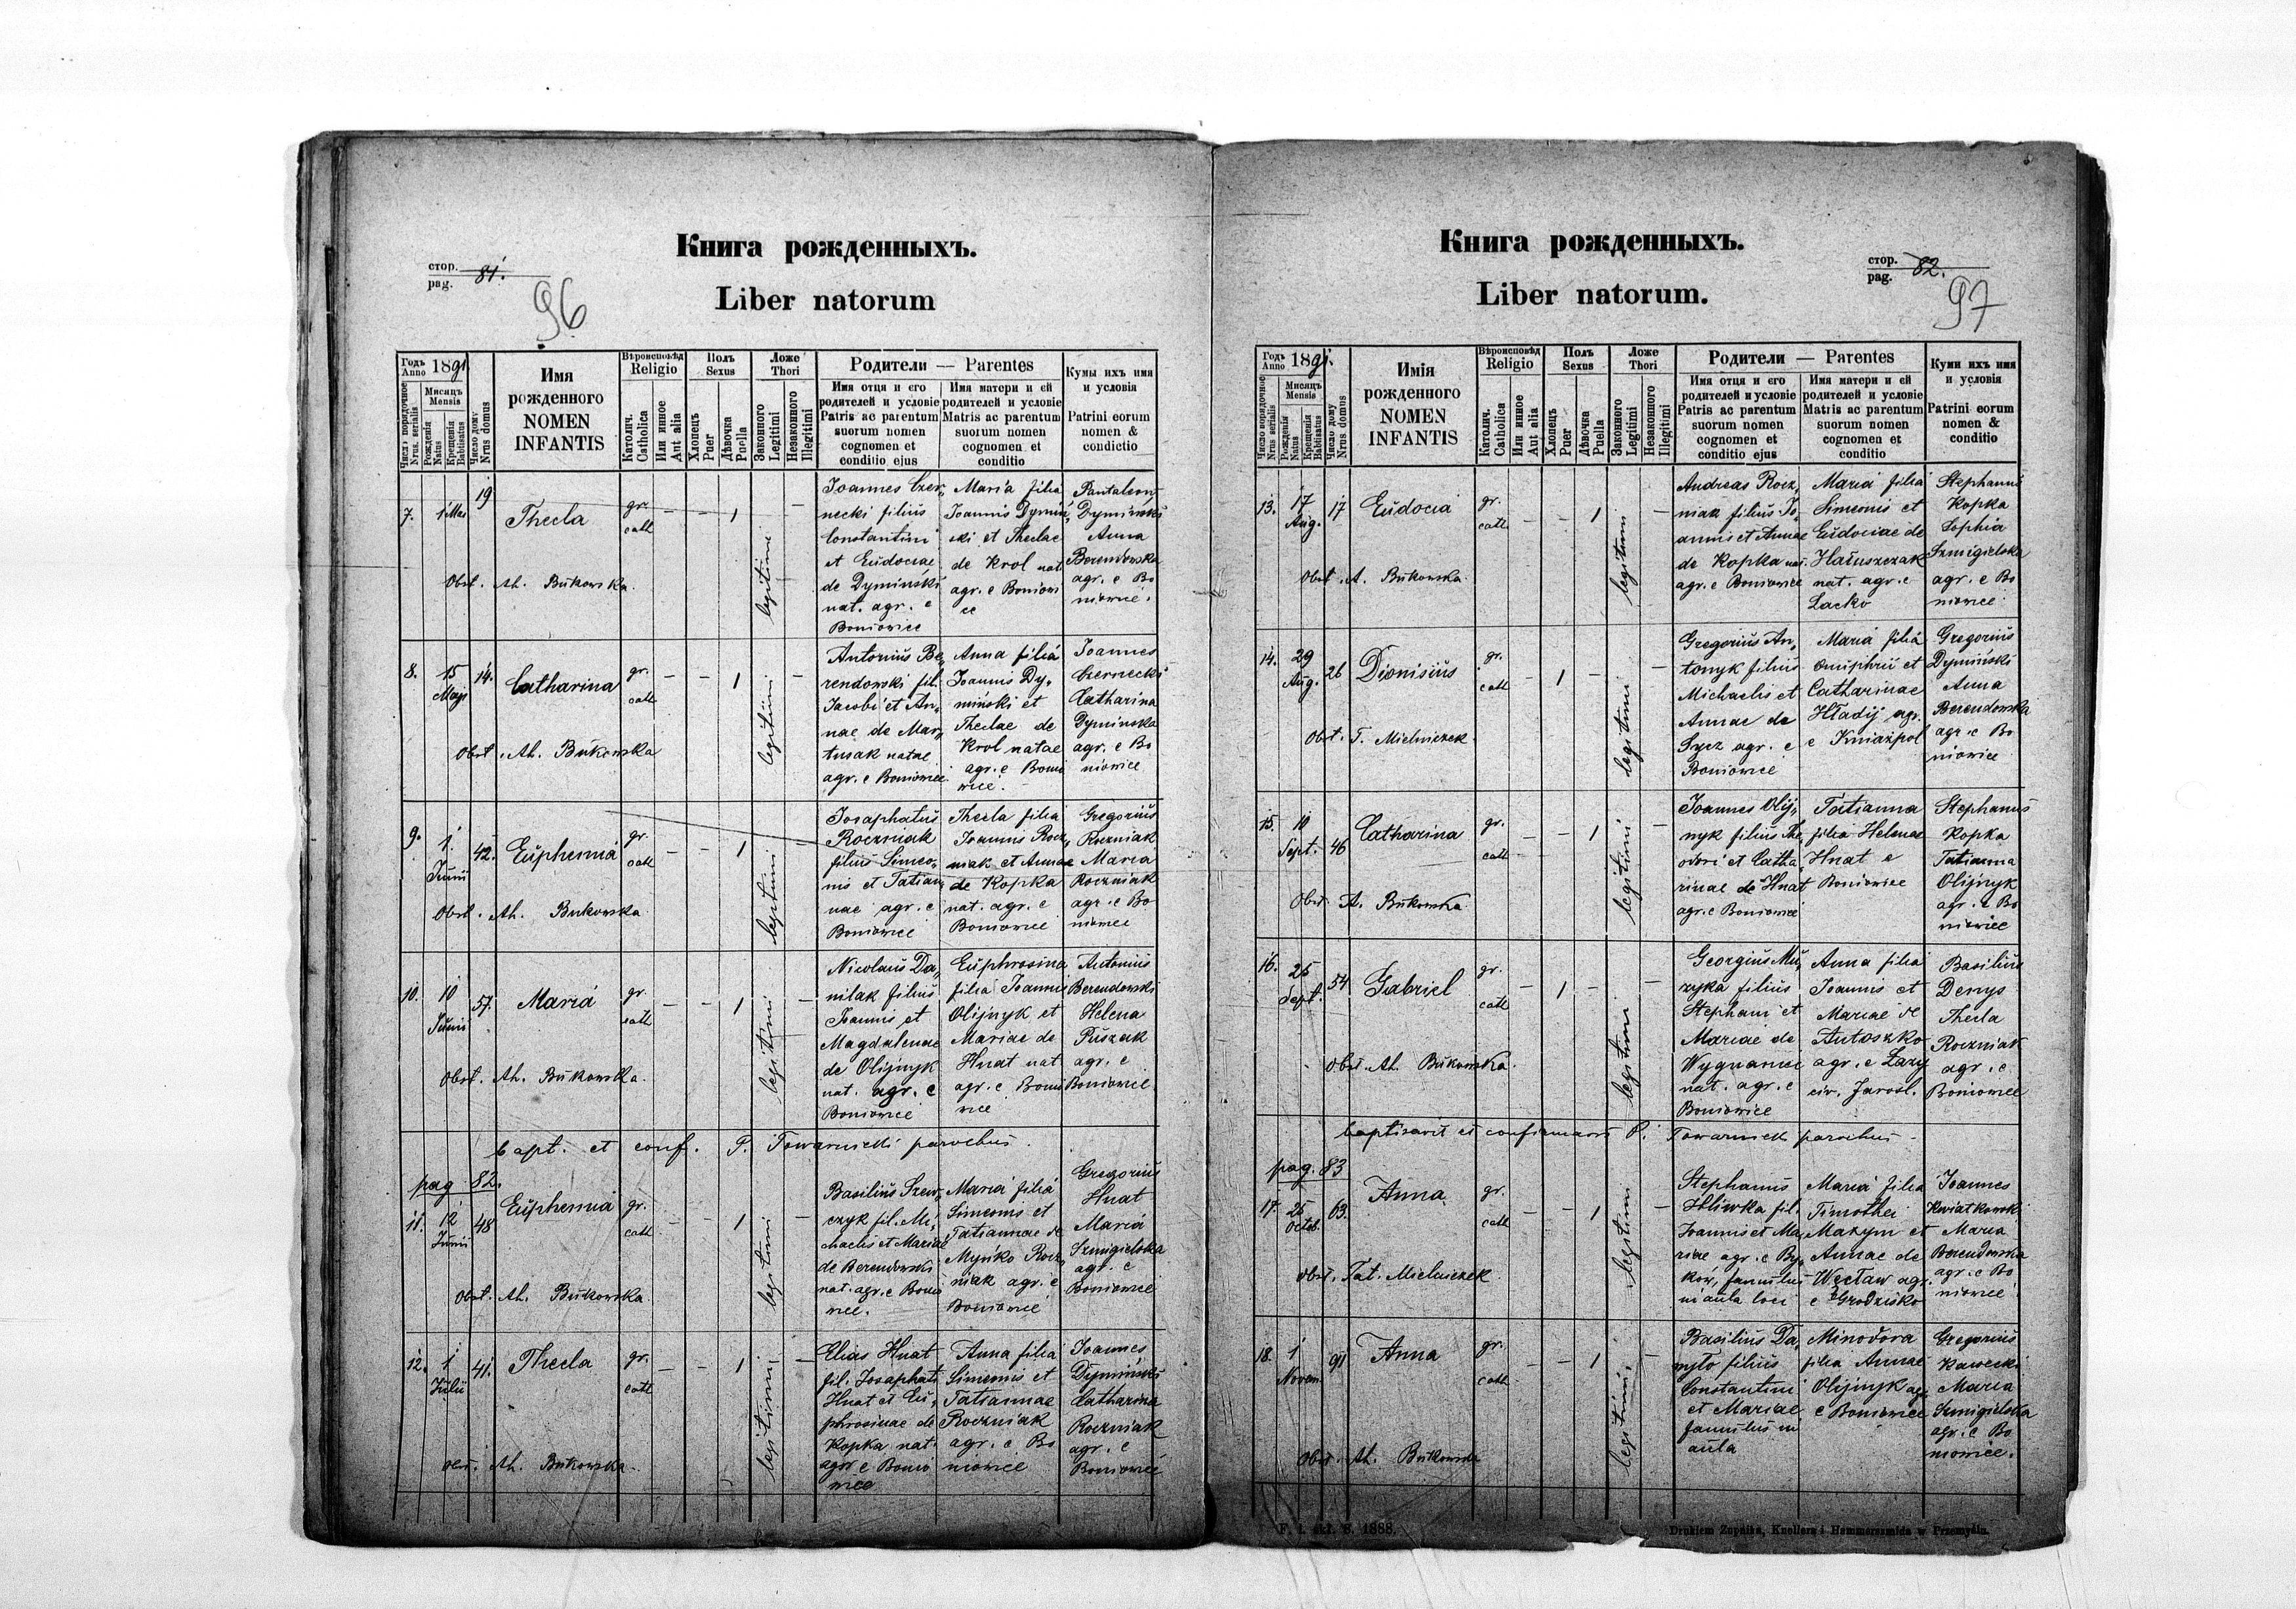 Книга рожденныхъ.
стор. 81.
pag.
96
Liber natorum
Годъ Anno 1891
Число порядочное Nrus. serialis
Мисяцъ Mensis
Рожденія Natus
Крещенія Babtisatus
Число дому Nrus domus
Имя рожденного NOMEN INFANTIS
Вѣроисповѣд Religio
Католич. Catholica
Или инное Aut alia
Полъ Sexus
Хлопецъ Puer
Дѣвочка Puella
Ложе Thori
Законного Legitimi
Незаконного Illegitimi
Родители — Parentes
Имя отця и его родителей и условіе
Patris ac parentum suorum nomen cognomen et conditio ejus
Имя матери и ей родителей и условіе
Matris ac parentum suorum nomen cognomen et conditio
Кумы ихъ имя и условія
Patrini eorum nomen & condictio
7. 1 Mai 19 Thecla gr. cath — — 1 legitimi —
Joannes Czer„
necki filius
Constantini
et Eudociae
de Dyminski
nat. agr. e
Boniowice
Maria filia
Joannis Dymiń„
ski et Theclae
de Krol nat
agr. e Boniowi
ce
Pantaleon
Dymiński
Anna
Berendowska
agr. e Bo
niowice.
Obst. Ah. Bukowska.
8. 15 Maji 14. Catharina gr. cath — — 1 legitimi —
Antonius Be„
rendowski fil.
Jacobi et An„
nae de Mar„
tusak natae
agr. e Boniowice
Anna filia
Joannis Dy„
miński et
Theclae de
Krol natae
agr. e Bonio
wice.
Joannes
Czernecki
Catharina
Dyminska
agr. e Bo
niowice
Obst. Ah. Bukowska
9. 1 Junii 42. Euphemia gr. cath — — 1 legitimi
Josaphatus
Roczniak
filius Simeo„
nis et Tatian„
nae agr. e
Boniowice
Thecla filia
Joannis Rocz„
niak et Annae
de Kopka
nat. agr. e
Boniowice
Gregorius
Roczniak
Maria
Roczniak
agr. e Bo
niowice
Obst. Ah. Bukowska
10. 10 Junii 57. Maria gr. cath — — 1 legitimi —
Nicolaus Da„
nilak filius
Joannis et
Magdalenae
de Olijnyk
nat. agr. e
Boniowice
Euphrosina
filia Joannis
Olijnyk et
Mariae de
Hnat nat
agr. e Bonio
wice
Antonius
Berendowski
Helena
Puszak
agr. e
Boniowice
Obst. Ah. Bukowska.
bapt. et conf. P. Towarnicki parochus.
pag 82.
11. 12 Junii 48 Euphemia gr. cath — — 1 legitimi —
Basilius Szew„
czyk fil. Mi„
chaelis et Mariae
de Berendowski
nat. agr. e Bonio
wice.
Maria filia
Simeonis et
Tatiannae de
Mynko Rocz
niak agr. e
Boniowice
Gregorius
Hnat
Maria
Szmigielska
agr. e
Boniowice
Obst. Ah. Bukowska.
12. 1 Julii 41. Thecla gr. cath — — 1 legitimi —
Elias Hnat
fil. Josaphati
Hnat et Eu„
phrosinae de
Kopka nat.
agr e Bonio
wice
Anna filia
Simeonis et
Tatiannae
Roczniak
agr. e Bo
niowice
Joannes
Dymiński
Catharina
Roczniak
agr. e
Boniowice
Obst. Ah. Bukowska.
Книга рожденныхъ.
стор. 82.
pag.
97
Liber natorum.
Годъ Anno 1891.
Число порядочное Nrus serialis
Мисяцъ Mensis
Рожденія Natus
Крещенія Babtisatus
Число дому Nrus domus
Имія рожденного NOMEN INFANTIS
Вѣроисповѣд Religio
Католич. Catholica
Или инное Aut alia
Полъ Sexus
Хлопецъ Puer
Дѣвочка Puella
Ложе Thori
Законного Legitimi
Незаконного Illegitimi
Родители — Parentes
Имя отця и его родителей и условіе
Patris ac parentum suorum nomen cognomen et conditio ejus
Имя матери и ей родителей и условіе
Matris ac parentum suorum nomen cognomen et conditio
Куми ихъ имя и условія
Patrini eorum nomen & conditio
13. 17 Aug. 17 Eudocia gr. cath — — 1 legitimi —
Andreas Rocz„
niak filius Jo„
annis et Annae
de Kopka nat.
agr. e Boniowice
Maria filia
Simeonis et
Eudociae de
Hatuszczak
nat. agr. e
Lacko
Stephanus
Kopka
Sophia
Szmigielska
agr. e Bo
niowice
Obst. A. Bukowska.
14. 29 Aug. 26 Dionisius gr. cath — 1 — legitimi —
Gregorius An„
tonyk filius
Michaelis et
Annae de
Sycz agr. e
Boniowice
Maria filia
Onuphrii et
Catharinae
Hładij agr.
e Kniażpol
Gregorius
Dymiński
Anna
Berendowska
agr. e Bo
niowice
Obst. T. Mielniczek.
15. 10 Sept. 46 Catharina gr. cath — — 1 legitimi —
Joannes Olij„
nyk filius The„
odori et Catha„
rinae de Hnat
agr. e Boniowice
Tatianna
filia Helenae
Hnat e
Boniowice
Stephanus
Kopka
Tatianna
Olijnyk
agr. e Bo
niowice
Obst. A. Bukowska
16. 25 Sept. 54 Gabriel gr. cath — 1 — legitimi —
Georgius Mu„
zyka filius
Stephani et
Mariae de
Wygnaniec
nat. agr. e
Boniowice
Anna filia
Joannis et
Mariae de
Antoszko
agr. e Łazy
civ. Jarosl.
Basilius
Denys
Thecla
Roczniak
agr. e
Boniowice
Obst. Ah. Bukowska.
baptisavit et confirmavit P. Towarnicki parochus.
pag. 83
17. 25 Octob. 63. Anna gr. cath — — 1 legitimi —
Stephanus
Hliwka fil.
Joannis et Ma„
riae agr. e By„
ków, famulus
in aula loci
Maria filia
Timothei
Mazym et
Annae de
Węcław agr.
e Grodzisko
Joannes
Kwiatkowski
Maria
Berendowska
agr. e Bo
niowice
Obst. Tat. Mielniczek.
18. 1 Novem. 91 Anna gr. cath — — 1 legitimi —
Basilius Da„
nyło filius
Constantini
et Mariae
famulus in
aula
Minodora
filia Annae
Olijnyk agr.
e Boniowice
Gregorius
Kawecki
Maria
Szmigielska
agr. e Bo
niowice.
Obst. Ah. Bukowska
1888.
Drukiem Żupnika, Knollera i Hammerszmida w Przemyślu.